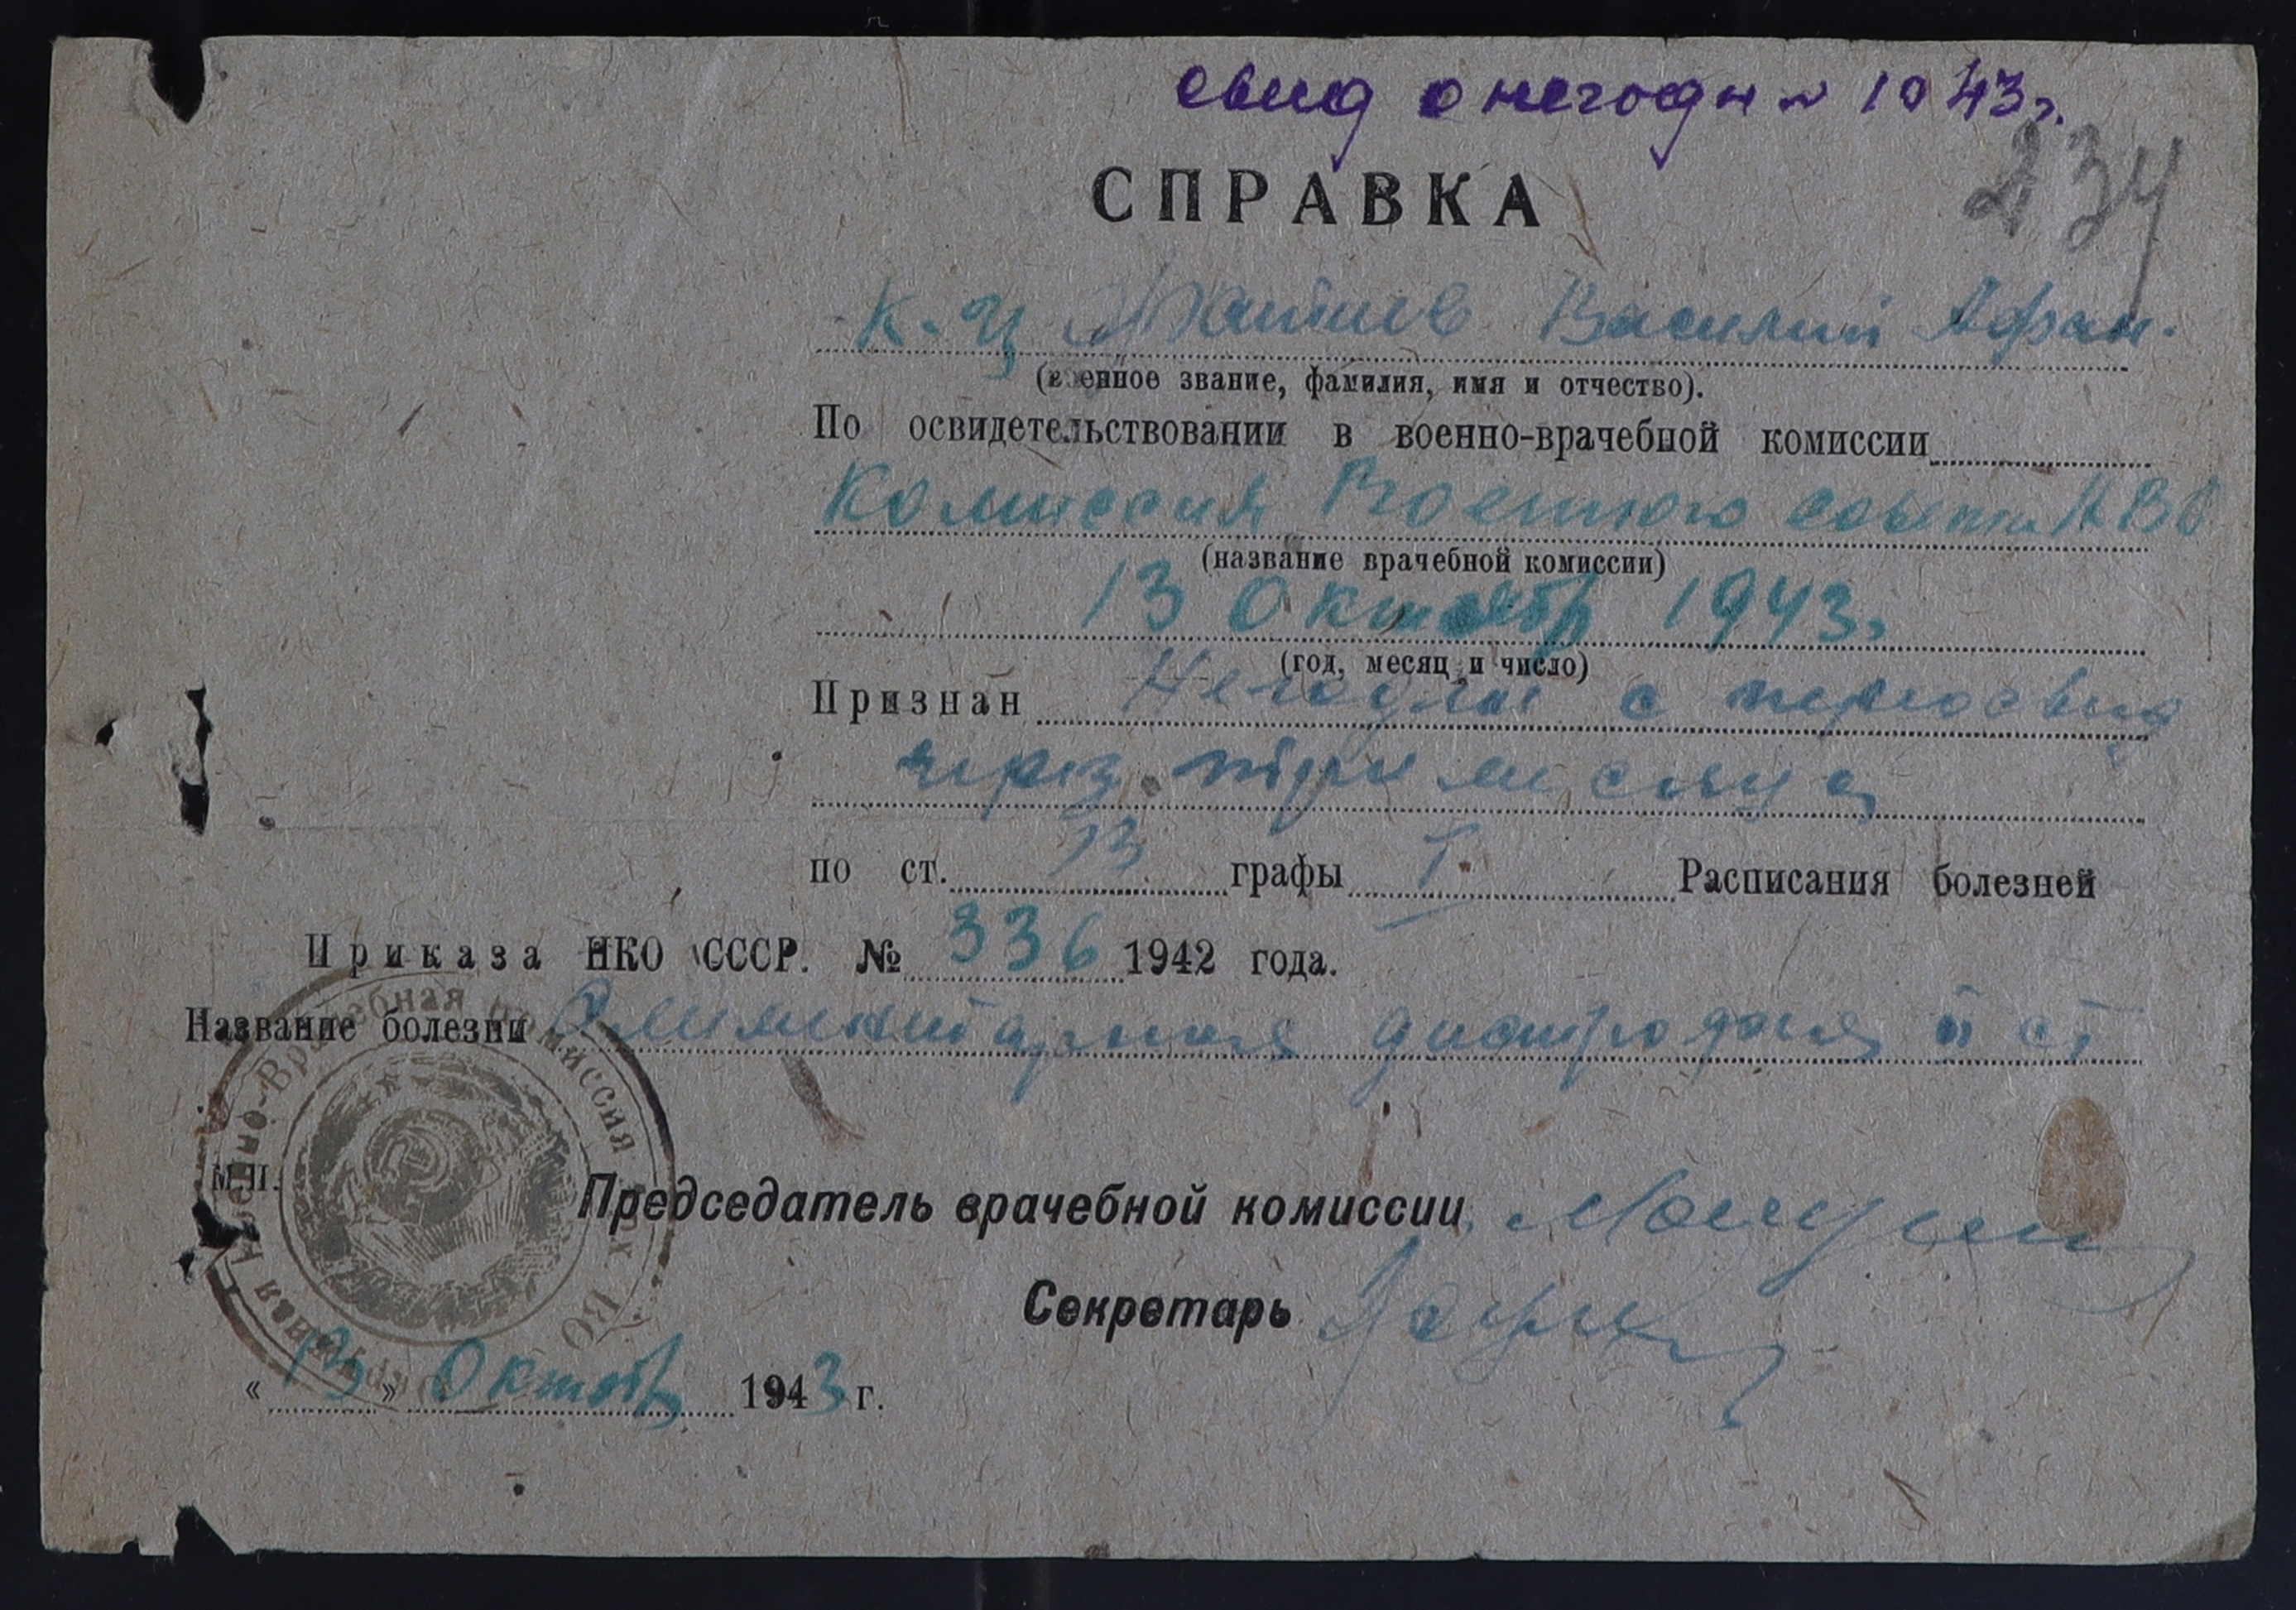 свид о негодн № 1043г.
234
СПРАВКА
К-ц Василий Афан.
(военное звание, фамилия, имя и отчество).
По освидетельствовании в военно-врачебной комиссии
Комиссия Военного совета АВО
(название врачебной комиссии)
13 Октябр 1943г
(год, месяц и число)
Признан Негодны с переосвид
через три месяца
по ст. 13 графы I Расписания болезней
Приказа НКО СССР. № 336 1942 года.
Название болезни Алиментарная дистрофия II ст
Военно-Врачебная Комиссия
М.П.
Председатель врачебной комиссии
Секретарь
«13» Октябр 1943 г.